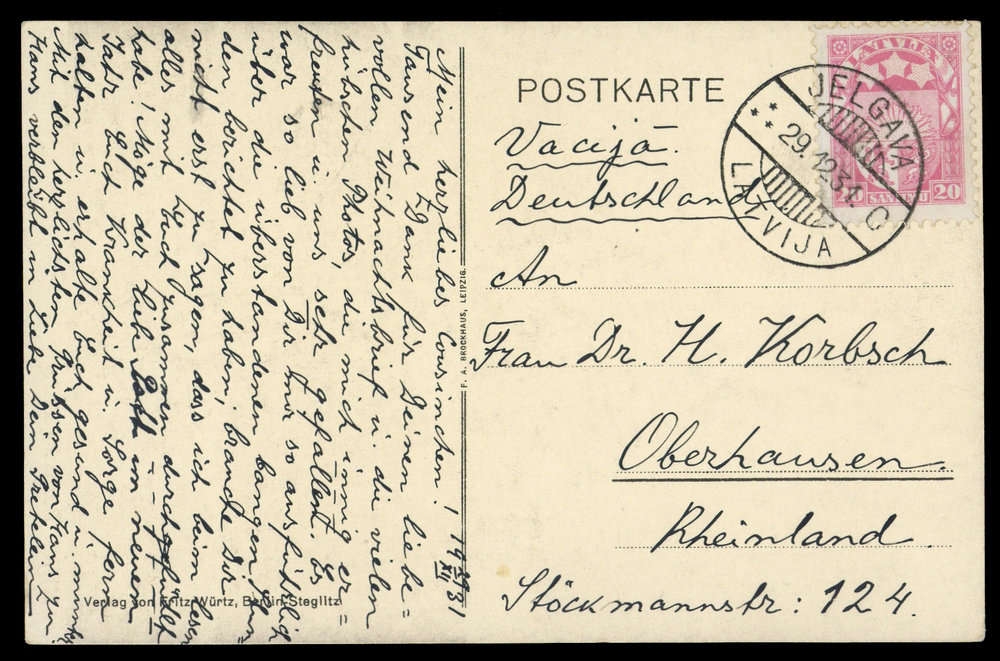 Mein herzliebes Cousinchen! 19 29/XII 31
Tausend Dank für Deinen liebe=
vollen Weihnachtsbrief u. die vielen
hübschen Photos, die mich innig er=
freuten u. uns sehr gefallen. Es
war so lieb von Dir mir so ausführlich
über die überstandenen bangen
den berichtet zu haben, brauche Dir
nicht erst zu sagen, dass ich beim Lesen
alles mit Euch zusammen durchgefühlt
habe! Möge der liebe Gott im neuen
Jahr Euch Krankheit u. Sorge fern
halten u. erhalte Euch gesund u. munter
Mit den herzlichsten Grüssen von Hans u.
Hans verbleibt in Liebe Dein Gretelein.
Verlag von Fritz Würtz, Berlin-Steglitz
F. A. BROCKHAUS, LEIPZIG.
POSTKARTE
LATVIJA
20 SANTIMU 20
JELGAVA
29.12.31 C
LATVIJA
Vacijā.
Deutschland
An
Frau Dr. H. Korbsch
Oberhausen.
Rheinland.
Stöckmannstr: 124.